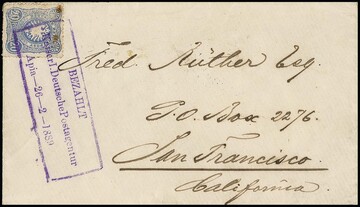 BEZAHLT
Kaiserl. Deutsche Postagentur
Apia—26-2-1889
Fred Rüther Esq.
P.O. Box 2276.
San Francisco.
California.